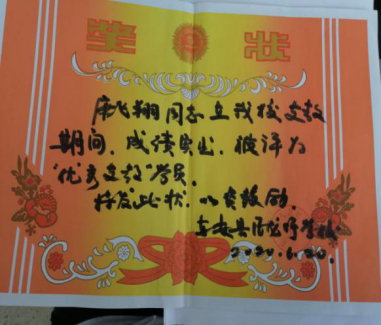 奖状
翔同志在我校支教
期间，成绩突出，被评为
“优秀支教”学员。
特发此状，以资鼓励。
县 学校